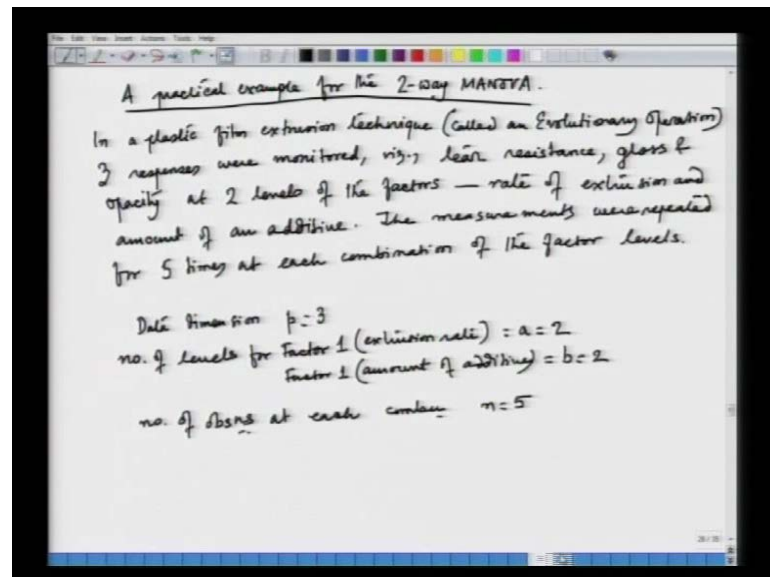 File Edit View Insert Actions Tools Help
A practical example for the 2-way MANOVA.
In a plastic film extrusion technique (called an Evolutionary Operation)
3 responses were monitored, viz., tear resistance, gloss &
opacity at 2 levels of the factors — rate of extrusion and
amount of an additive. The measurements were repeated
for 5 times at each combination of the factor levels.
Data dimension p=3
no. of levels for Factor 1 (extrusion rate) = a = 2
Factor 1 (amount of additive) = b = 2
no. of obsns at each combn n=5